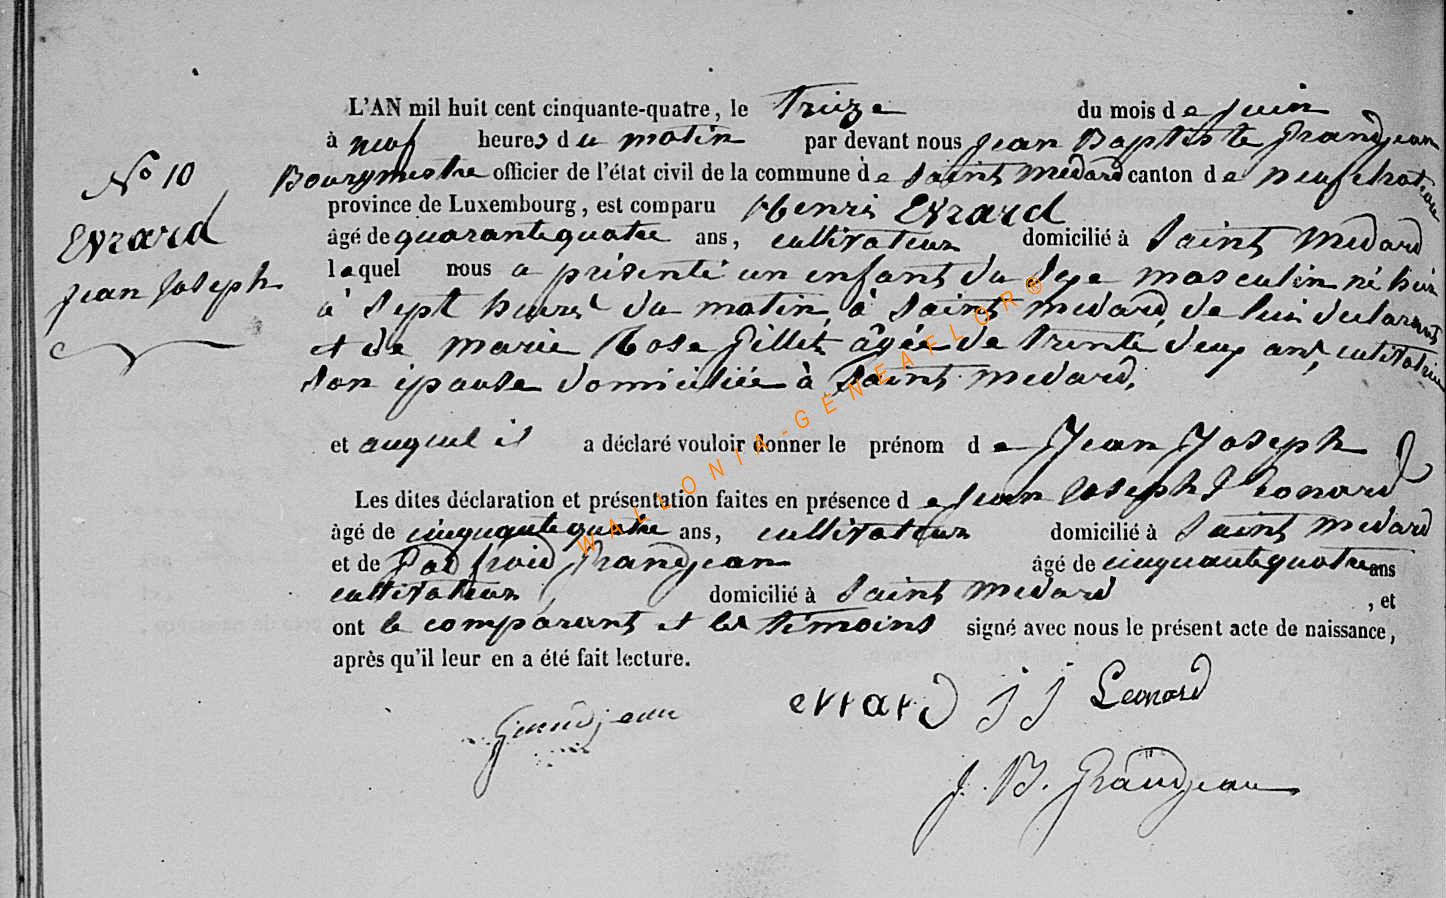 No 10
Evrard
jean Joseph
L'AN mil huit cent cinquante-quatre, le Treize du mois de juin
à neuf heures du matin par devant nous jean Baptiste Grandjean
Bourgmestre officier de l'état civil de la commune de Saint Medard canton de neufchateau
province de Luxembourg, est comparu Henri Evrard
âgé de quarante quatre ans, cultivateur domicilié à Saint Medard
lequel nous a présenté un enfant du sexe masculin né hier
à Sept heures du matin, à Saint Medard, de lui declarant
et de Marie Rose Gillet, âgée de Trente deux ans, cultivateur
Son épouse domiciliée à Saint Medard,
et auquel il a déclaré vouloir donner le prénom de Jean Joseph
Les dites déclaration et présentation faites en présence de jean Joseph Leonard
âgé de cinquante quatre ans, cultivateur domicilié à Saint Medard
et de Godfroid Grandjean âgé de cinquante quatre ans
cultivateur, domicilié à Saint Medard , et
ont le comparant et les témoins signé avec nous le présent acte de naissance,
après qu'il leur en a été fait lecture.
Grandjean evrard J J Leonard
J. B. Grandjean
WALLONIA-GÉNÉAFLOR®